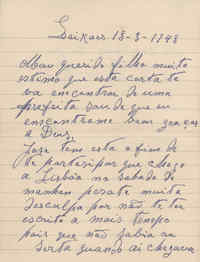 18-3-1948
Meu querido filho muito
estimo que esta carta te
va encontrar de uma
prefeita saude que eu
encontrome bem graças
a Deus.
esta a fim de
te partesipar que chego
a Lisboa no sabado de
manham peso te muita
desculpa por não te ter
escrito a mais tempo
pois que não sabia ao
serta quando ai chegava